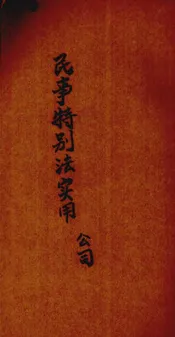 民事特别法实用
公司